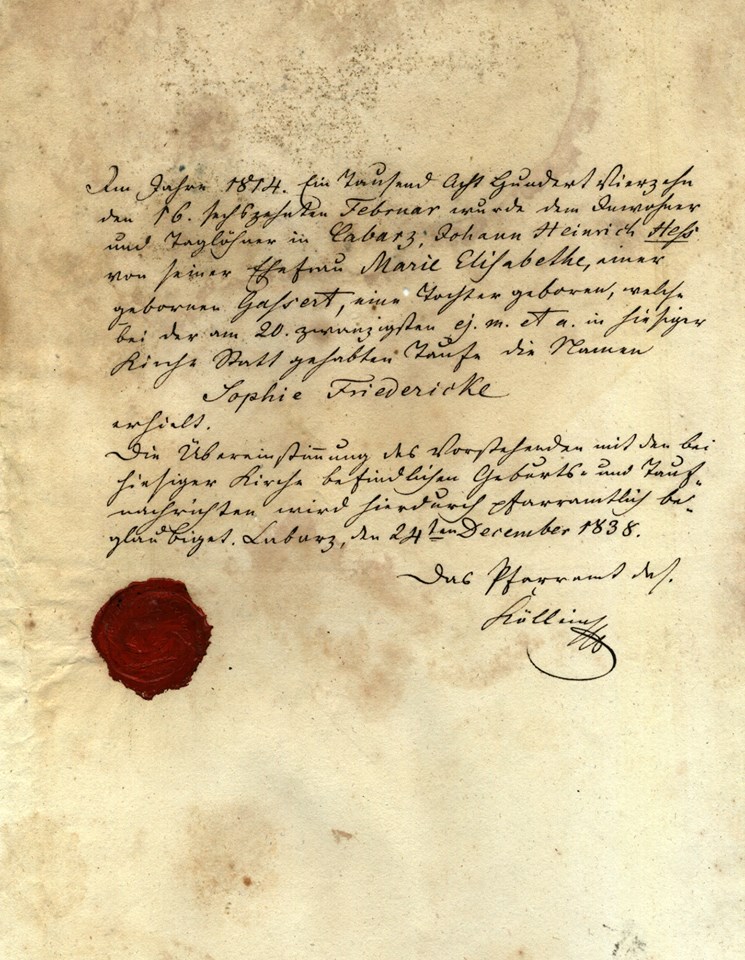 Im Jahre 1814. Ein Tausend Acht Hundert Vierzehn
den 16. sechszehnten Februar wurde dem Inwohner
und Taglöhner in Cabarz, Johann Heinrich Hess
von seiner Ehefrau Marie Elisabethe, einer
gebornen Gassert, eine Tochter geboren, welche
bei der am 20. zwanzigsten ej. m. et a. in hiesiger
Kirche Statt gehabten Taufe die Namen
Sophie Friedericke
erhielt.
Die Übereinstimmung des Vorstehenden mit den bei
hiesiger Kirche befindlichen Geburts- und Tauf-
nachrichten wird hierdurch pfarramtlich be-
glaubiget. Cabarz, den 24ten December 1838.
Das Pfarramt das.